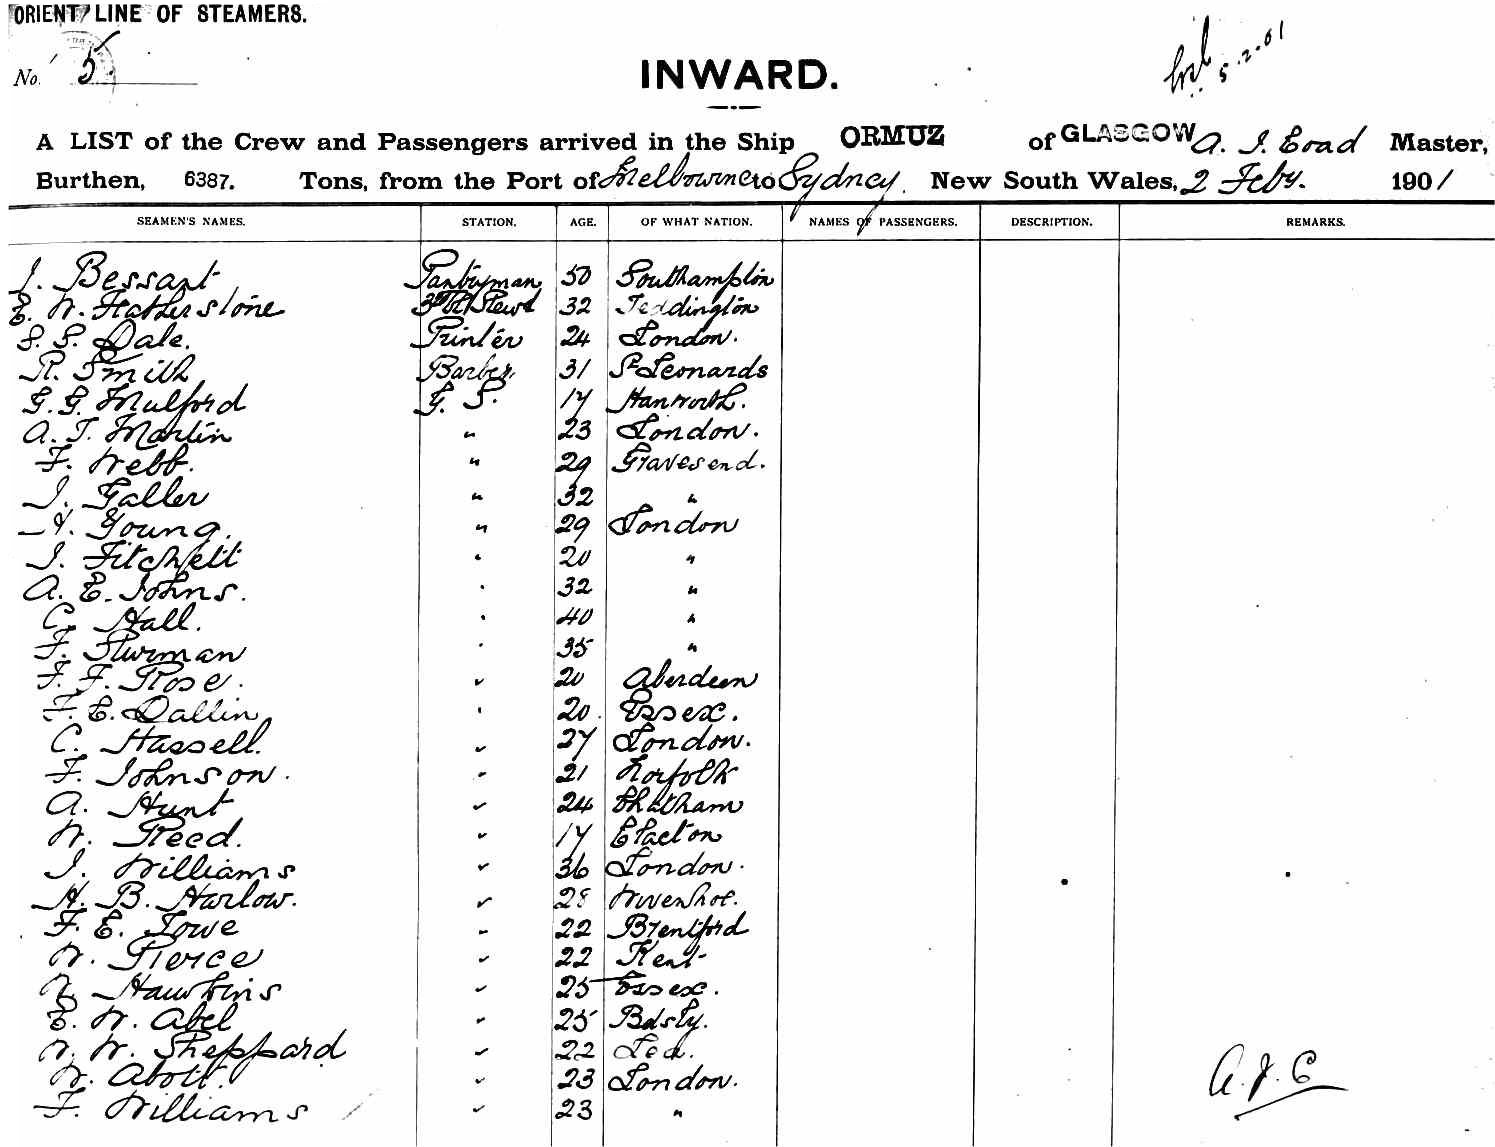 ORIENT LINE OF STEAMERS.
No. 5
5.2.01
INWARD.
A LIST of the Crew and Passengers arrived in the Ship ORMUZ of GLASGOW A. J. Coad Master,
Burthen, 6387. Tons, from the Port of Melbourne to Sydney, New South Wales, 2 Feby. 1901
SEAMEN'S NAMES. STATION. AGE. OF WHAT NATION. NAMES OF PASSENGERS. DESCRIPTION. REMARKS.
J. Bessant Pantryman 50 Southampton
E. W. Featherstone Stewd 32 Teddington
S. S. Dale. Printer 24 London.
R. Smith Barber 31 St Leonards
G. G. Mulford G. S. 17 Hanworth.
A. T. Martin " 23 London.
F. Webb. " 29 Gravesend.
J. Faller " 32 "
H. Young. " 29 London
J. Fitchett " 20 "
A. E. Johns. " 32 "
C. Hall. " 40 "
F. Sturman " 35 "
F. F. Rose. " 20 Aberdeen
F. E. Dallin " 20. Essex.
C. Hassell. " 27 London.
F. Johnson. " 21 Norfolk
A. Hunt " 24 Chatham
W. Reed. " 17 Clacton
J. Williams " 36 London.
H. B. Harlow. " 28 Wivenhoe.
F. E. Lowe " 22 Brentford
W. Pierce " 22 Kent
Hawkins " 25 Essex.
E. W. Abel " 25
W. W. Sheppard " 22 Ted.
W. Abott. " 23 London.
F. Williams " 23 "
A. J. C